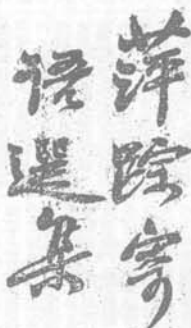 萍踪寄
语選集